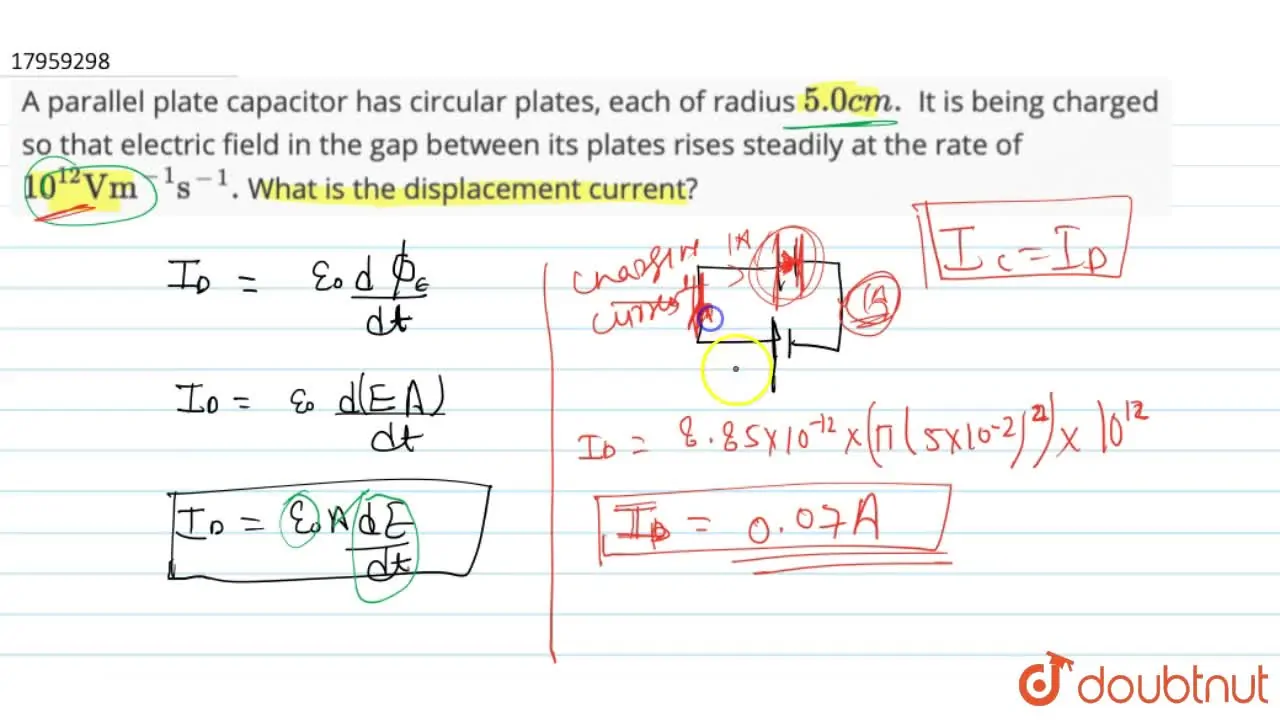 17959298
A parallel plate capacitor has circular plates, each of radius 5.0cm. It is being charged
so that electric field in the gap between its plates rises steadily at the rate of
10¹²Vm⁻¹s⁻¹. What is the displacement current?
I_D = ε₀ dϕ_E/dt
I_D = ε₀ d(EA)/dt
I_D = ε₀ A dE/dt
charging
current
1A
1A
I_C = I_D
I_D = 8.85×10⁻¹² × (π(5×10⁻²)²) × 10¹²
I_D = 0.07A
doubtnut